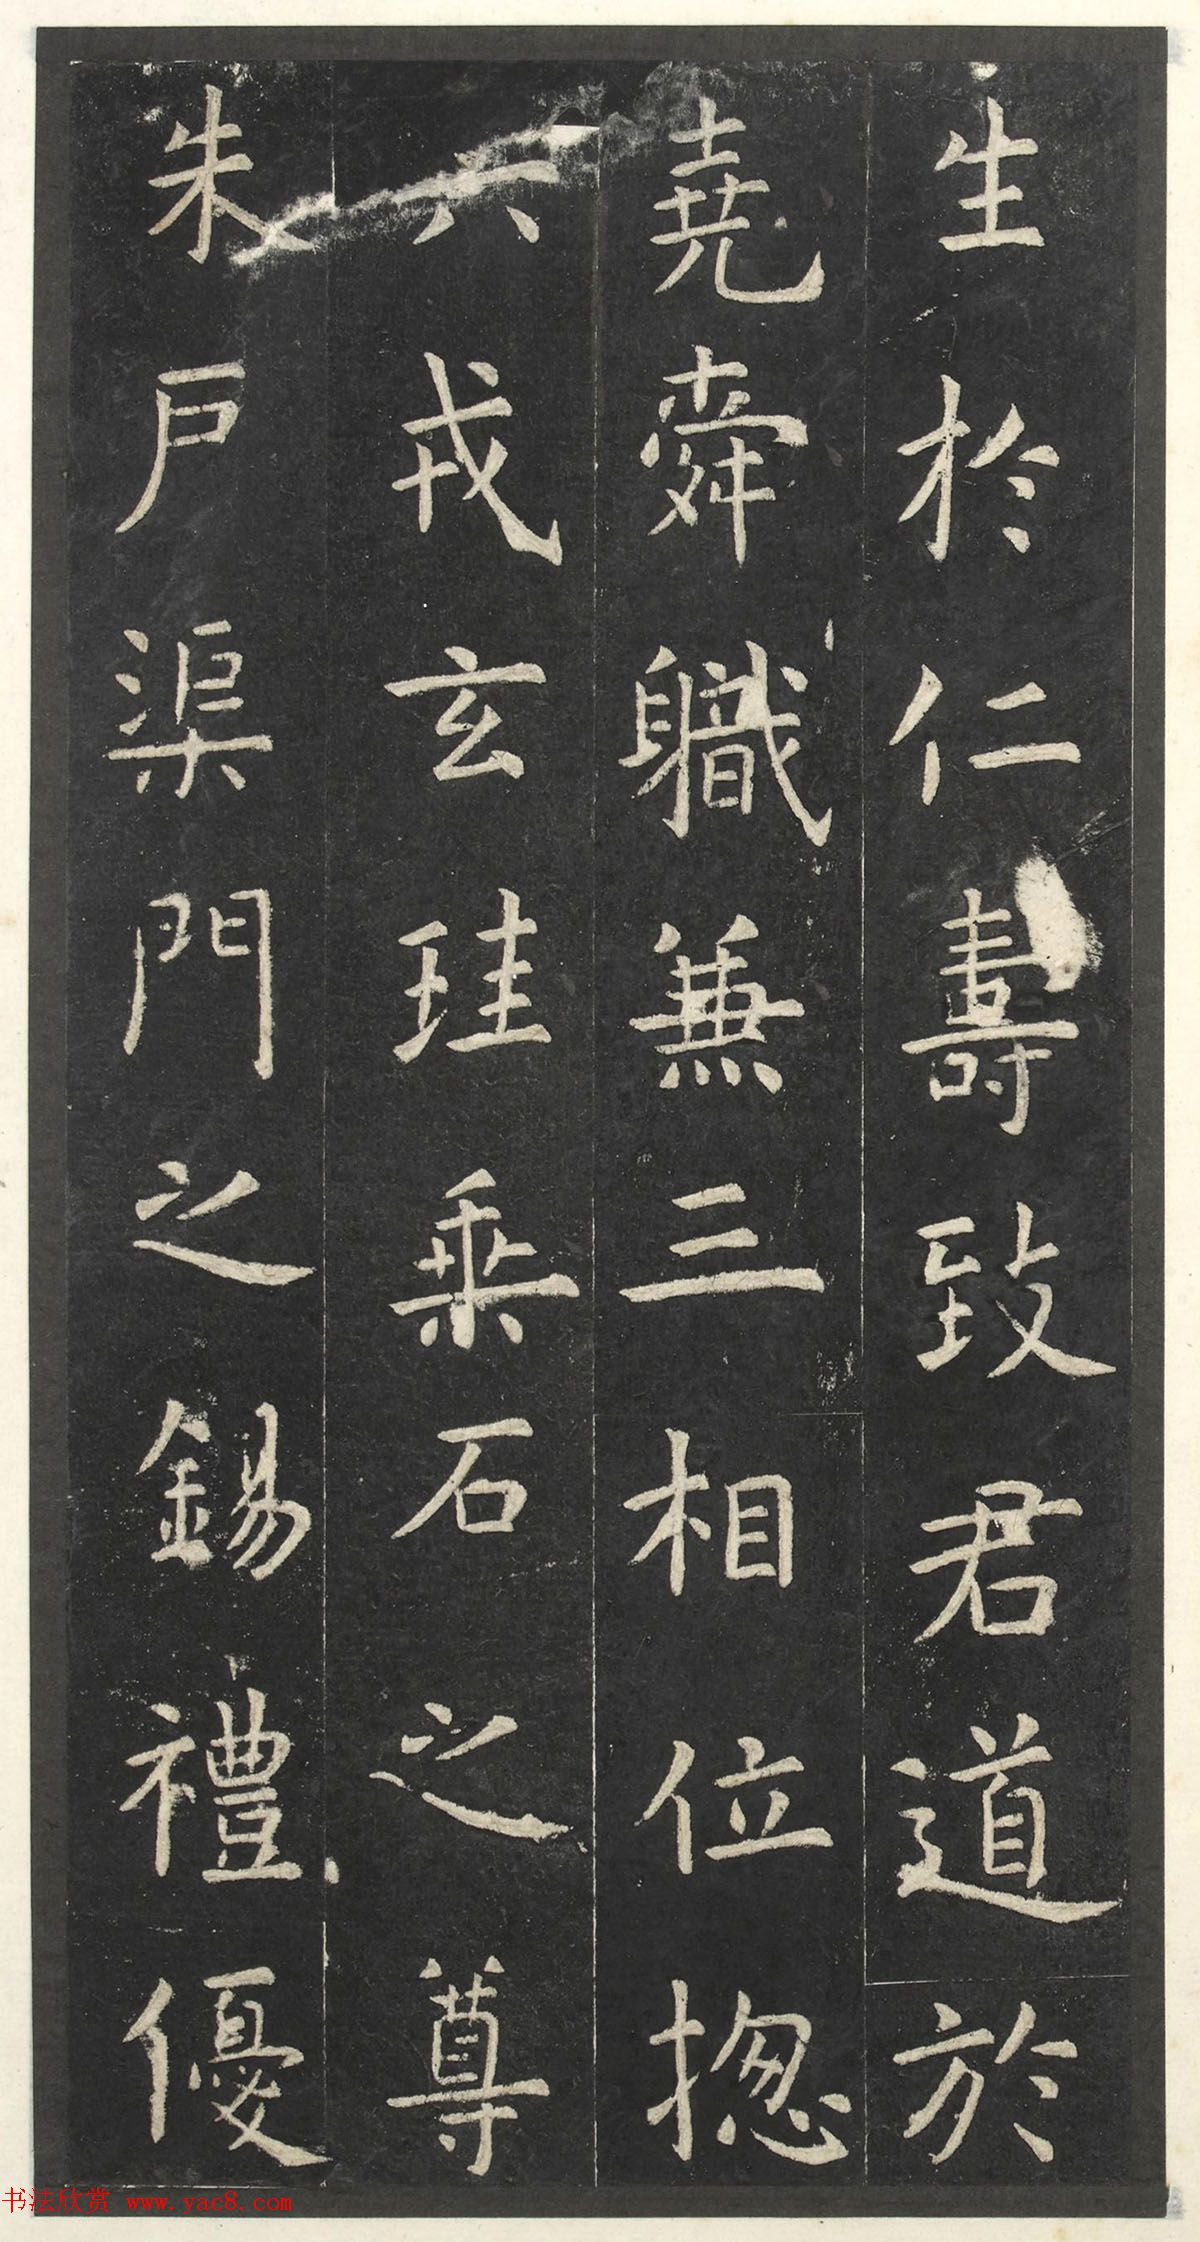 生於仁壽致君道於
堯舜軄兼三相位揔
六戎玄珪乘石之尊
朱戶渠門之錫禮優
书法欣赏 www.yac8.com